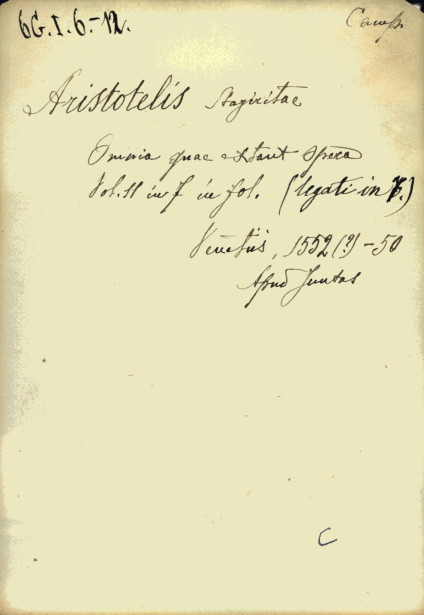 6G.I.6.-12.
Camp.
Aristotelis Stagiritae
Omnia quae extant opera
Vol. 11 in 7 in fol. (legati in 7.)
Venetiis, 1552 (?) - 50
Apud Juntas
C